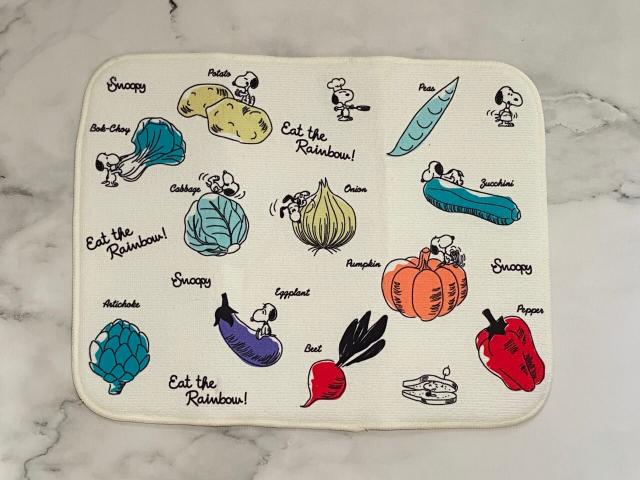 Snoopy
Potato
Peas
Bok-Choy
Eat the
Rainbow!
Cabbage
Onion
Zucchini
Eat the
Rainbow!
Pumpkin
Snoopy
Snoopy
Artichoke
Eggplant
Pepper
Beet
Eat the
Rainbow!